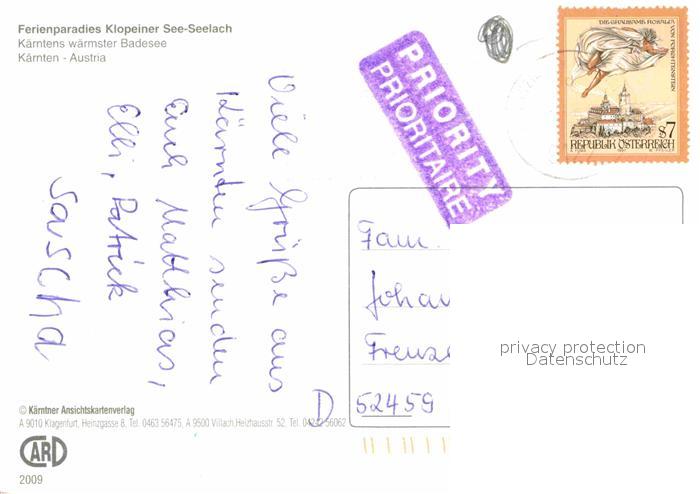 Ferienparadies Klopeiner See-Seelach
Kärntens wärmster Badesee
Kärnten - Austria
PRIORITY
PRIORITAIRE
DIE GRAUSAME ROSALIA
VON FORCHTENSTEIN
$7
REPUBLIK ÖSTERREICH
Viele Grüße aus
Kärnten senden
Euch Matthias,
Elli, Patrick
Sascha
Fam.
Johan
Frenze
D 52459
privacy protection
Datenschutz
© Kärntner Ansichtskartenverlag
A 9010 Klagenfurt, Heinzgasse 8, Tel. 0463 56475, A 9500 Villach, Heizhausstr. 52, Tel. 04242 56062
CARD
2009